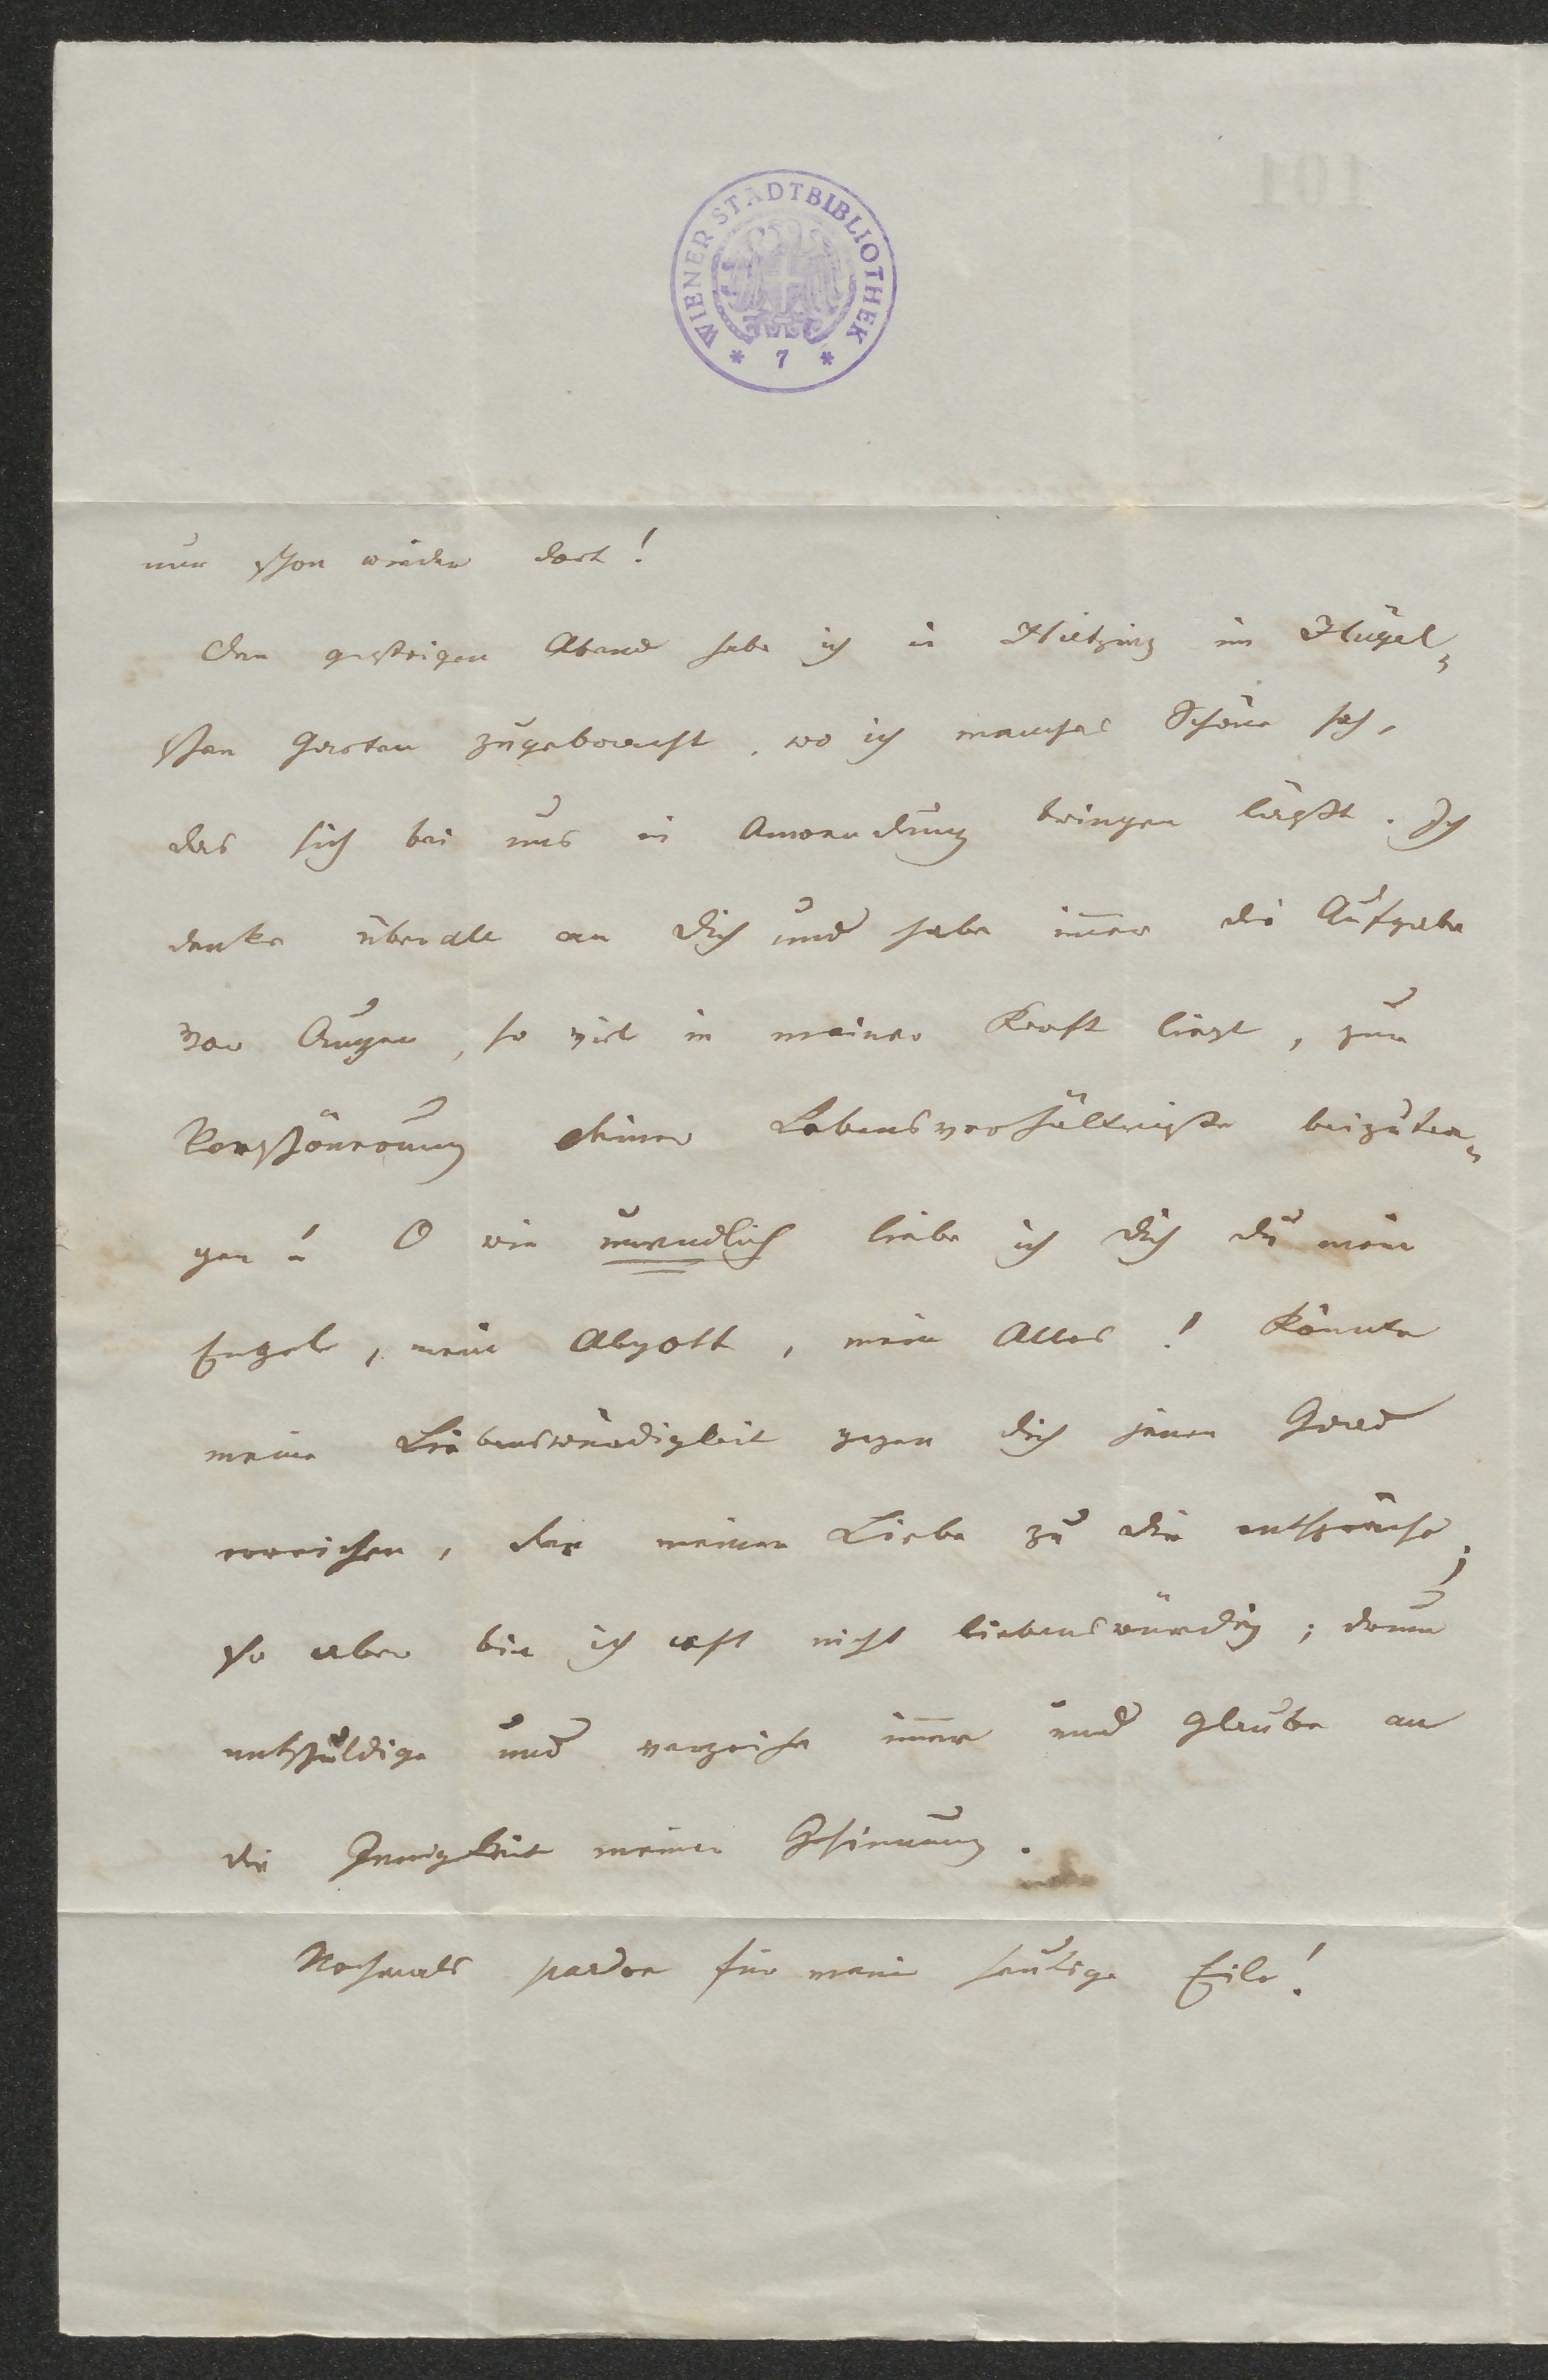 101
WIENER STADTBIBLIOTHEK
* 7 *
nur schon wieder dort!
Den gestrigen Abend habe ich in Hietzing im Hügel-
schen Garten zugebracht, wo ich manches Schöne sah,
das sich bei uns in Anwendung bringen läßt. Ich
denke überall an Dich und habe im̅er die Aufgabe
vor Augen, so viel in meiner Kraft liegt, zur
Verschönerung Deiner Lebensverhältniße beizutra-
gen! O wie unendlich liebe ich Dich Du mein
Engel, mein Abgott, mein Alles! Könnte
meine Liebenswürdigkeit gegen Dich jenen Grad
erreichen, der meiner Liebe zu Dir entspräche;
so aber bin ich oft nicht liebenswürdig; drum
entschuldige und verzeihe im̅er und glaube an
die Innigkeit meiner Gesinnung.
Nochmals pardon für meine heutige Eile!